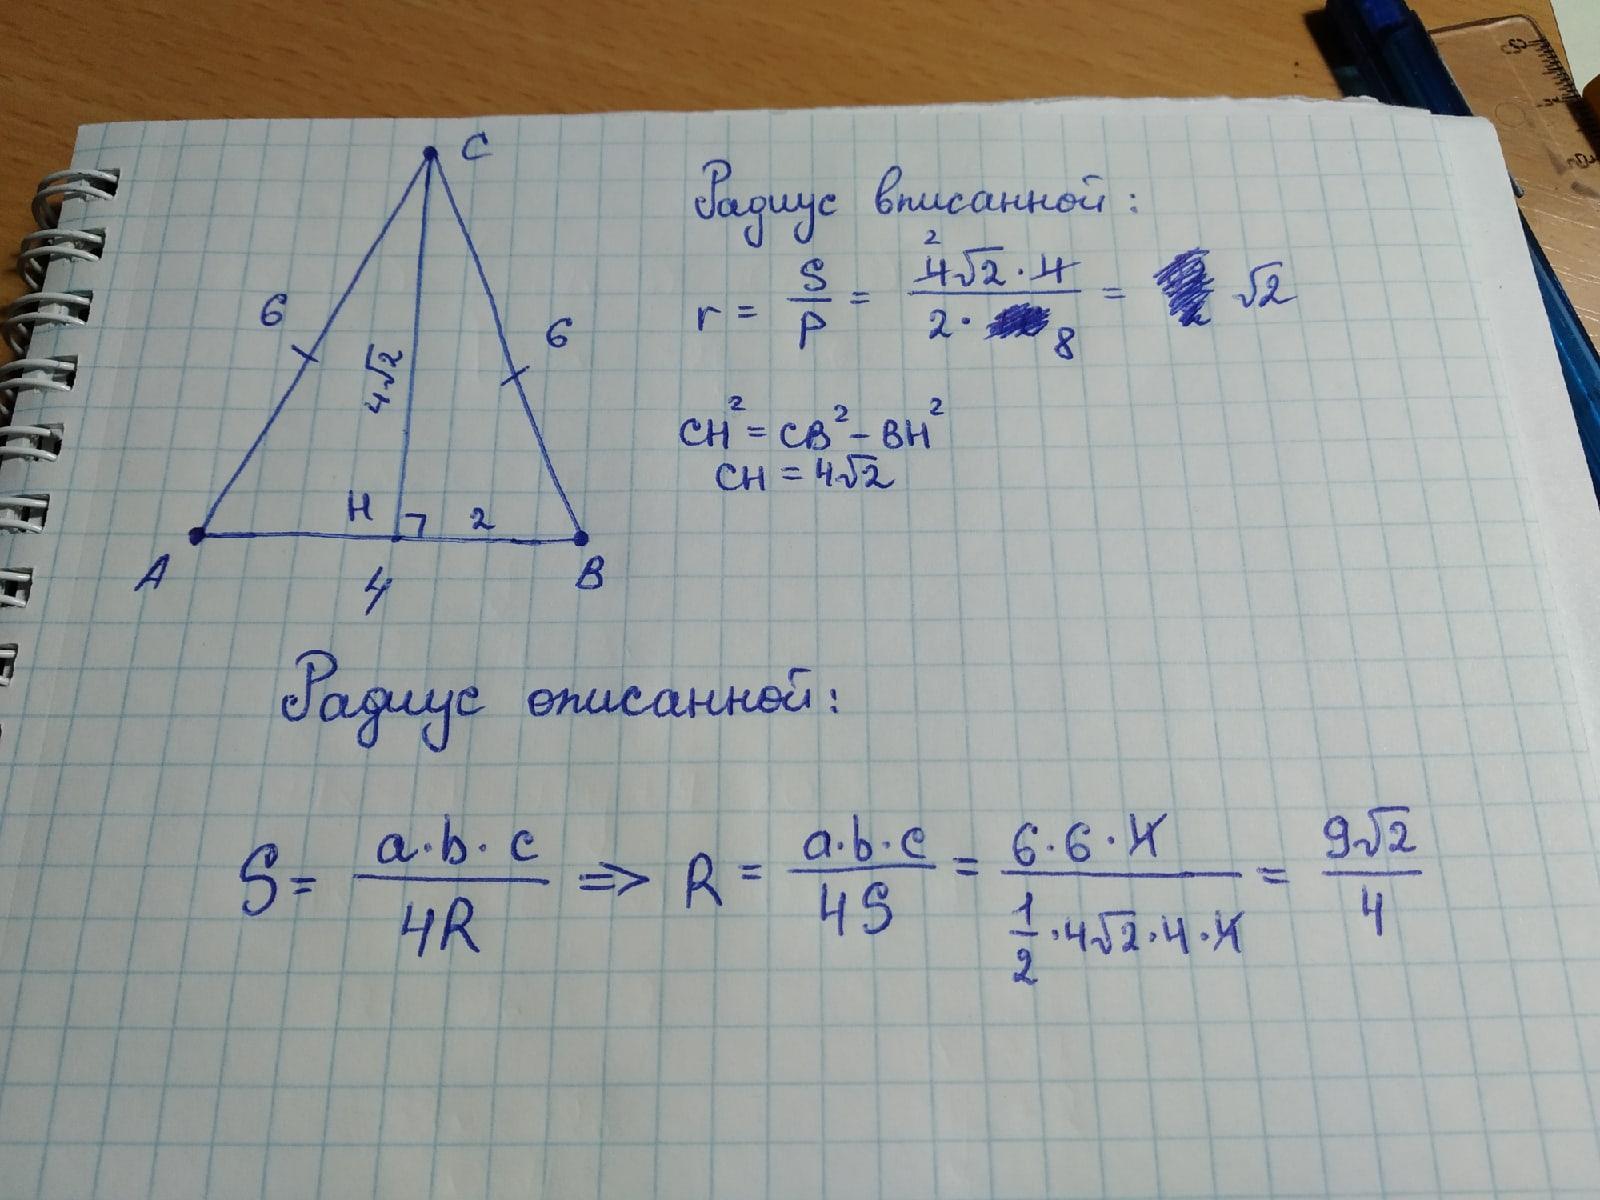 C
6
6
4√2
H
2
A
4
B
Радиус вписанной:
r = S/P = 4√2·4 / 2· 8 = √2
2
CH² = CB² − BH²
CH = 4√2
Радиус описанной:
S = a·b·c / 4R => R = a·b·c / 4S = 6·6·4 / 1/2·4√2·4·4 = 9√2 / 4